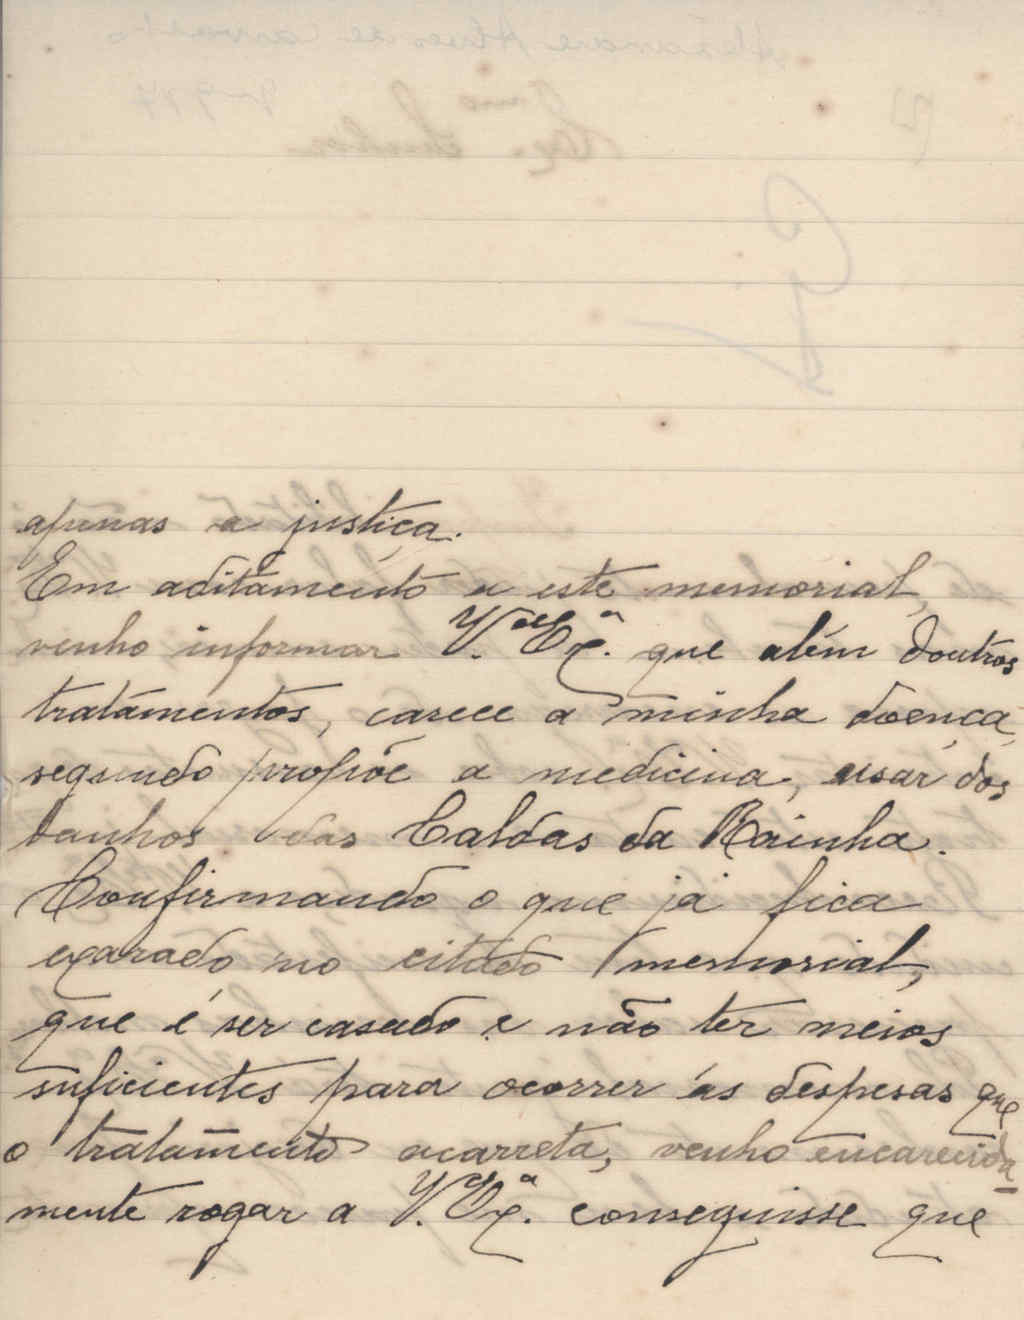 apenas a justiça.
Em aditamento a este memorial,
venho informar V. Ex.ª que além doutros
tratamentos, carece a minha doença,
segundo propõe a medicina, usar dos
banhos das Caldas da Rainha.
Confirmando o que já fica
exarado no citado memorial,
que é ser casado e não ter meios
suficientes para ocorrer ás despesas que
o tratamento acarreta, venho encarecida-
mente rogar a V. Ex.ª conseguisse que